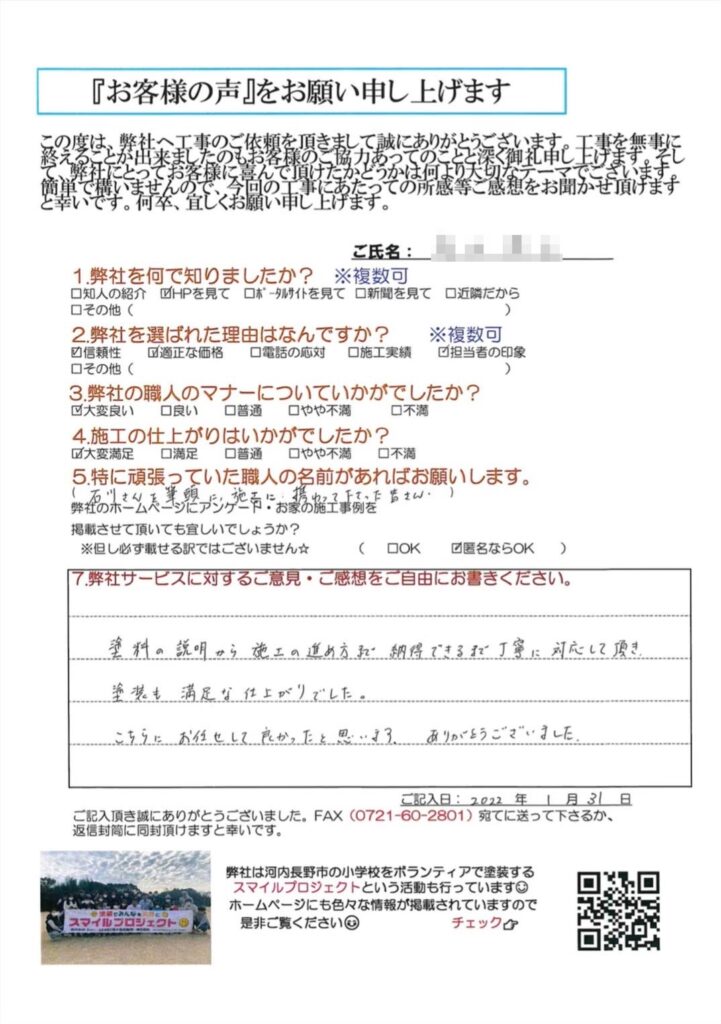 『お客様の声』をお願い申し上げます
この度は、弊社へ工事のご依頼を頂きまして誠にありがとうございます。工事を無事に
終えることが出来ましたのもお客様のご協力あってのことと深く御礼申し上げます。そし
て、弊社にとってお客様に喜んで頂けたかどうかは何より大切なテーマでございます。
簡単で構いませんので、今回の工事にあたっての所感等ご感想をお聞かせ頂けます
と幸いです。何卒、宜しくお願い申し上げます。
ご氏名：
1.弊社を何で知りましたか？ ※複数可
□知人の紹介 ☑HPを見て □ポータルサイトを見て □新聞を見て □近隣だから
□その他（ ）
2.弊社を選ばれた理由はなんですか？ ※複数可
☑信頼性 ☑適正な価格 □電話の応対 □施工実績 ☑担当者の印象
□その他（ ）
3.弊社の職人のマナーについていかがでしたか？
☑大変良い □良い □普通 □やや不満 □不満
4.施工の仕上がりはいかがでしたか？
☑大変満足 □満足 □普通 □やや不満 □不満
5.特に頑張っていた職人の名前があればお願いします。
（石川さんを筆頭に、施工に携わって下さった皆さん。）
弊社のホームページにアンケート・お家の施工事例を
掲載させて頂いても宜しいでしょうか？
※但し必ず載せる訳ではございません☆ （ □OK ☑匿名ならOK ）
7.弊社サービスに対するご意見・ご感想をご自由にお書きください。
塗料の説明から施工の進め方まで納得できるまで丁寧に対応して頂き、
塗装も満足な仕上がりでした。
こちらにお任せして良かったと思います。ありがとうございました。
ご記入日：2022 年 1 月 31 日
ご記入頂き誠にありがとうございました。FAX（0721-60-2801）宛てに送って下さるか、
返信封筒に同封頂けますと幸いです。
弊社は河内長野市の小学校をボランティアで塗装する
スマイルプロジェクトという活動も行っています☺
ホームページにも色々な情報が掲載されていますので
是非ご覧ください☺ チェック☞
スマイルプロジェクト